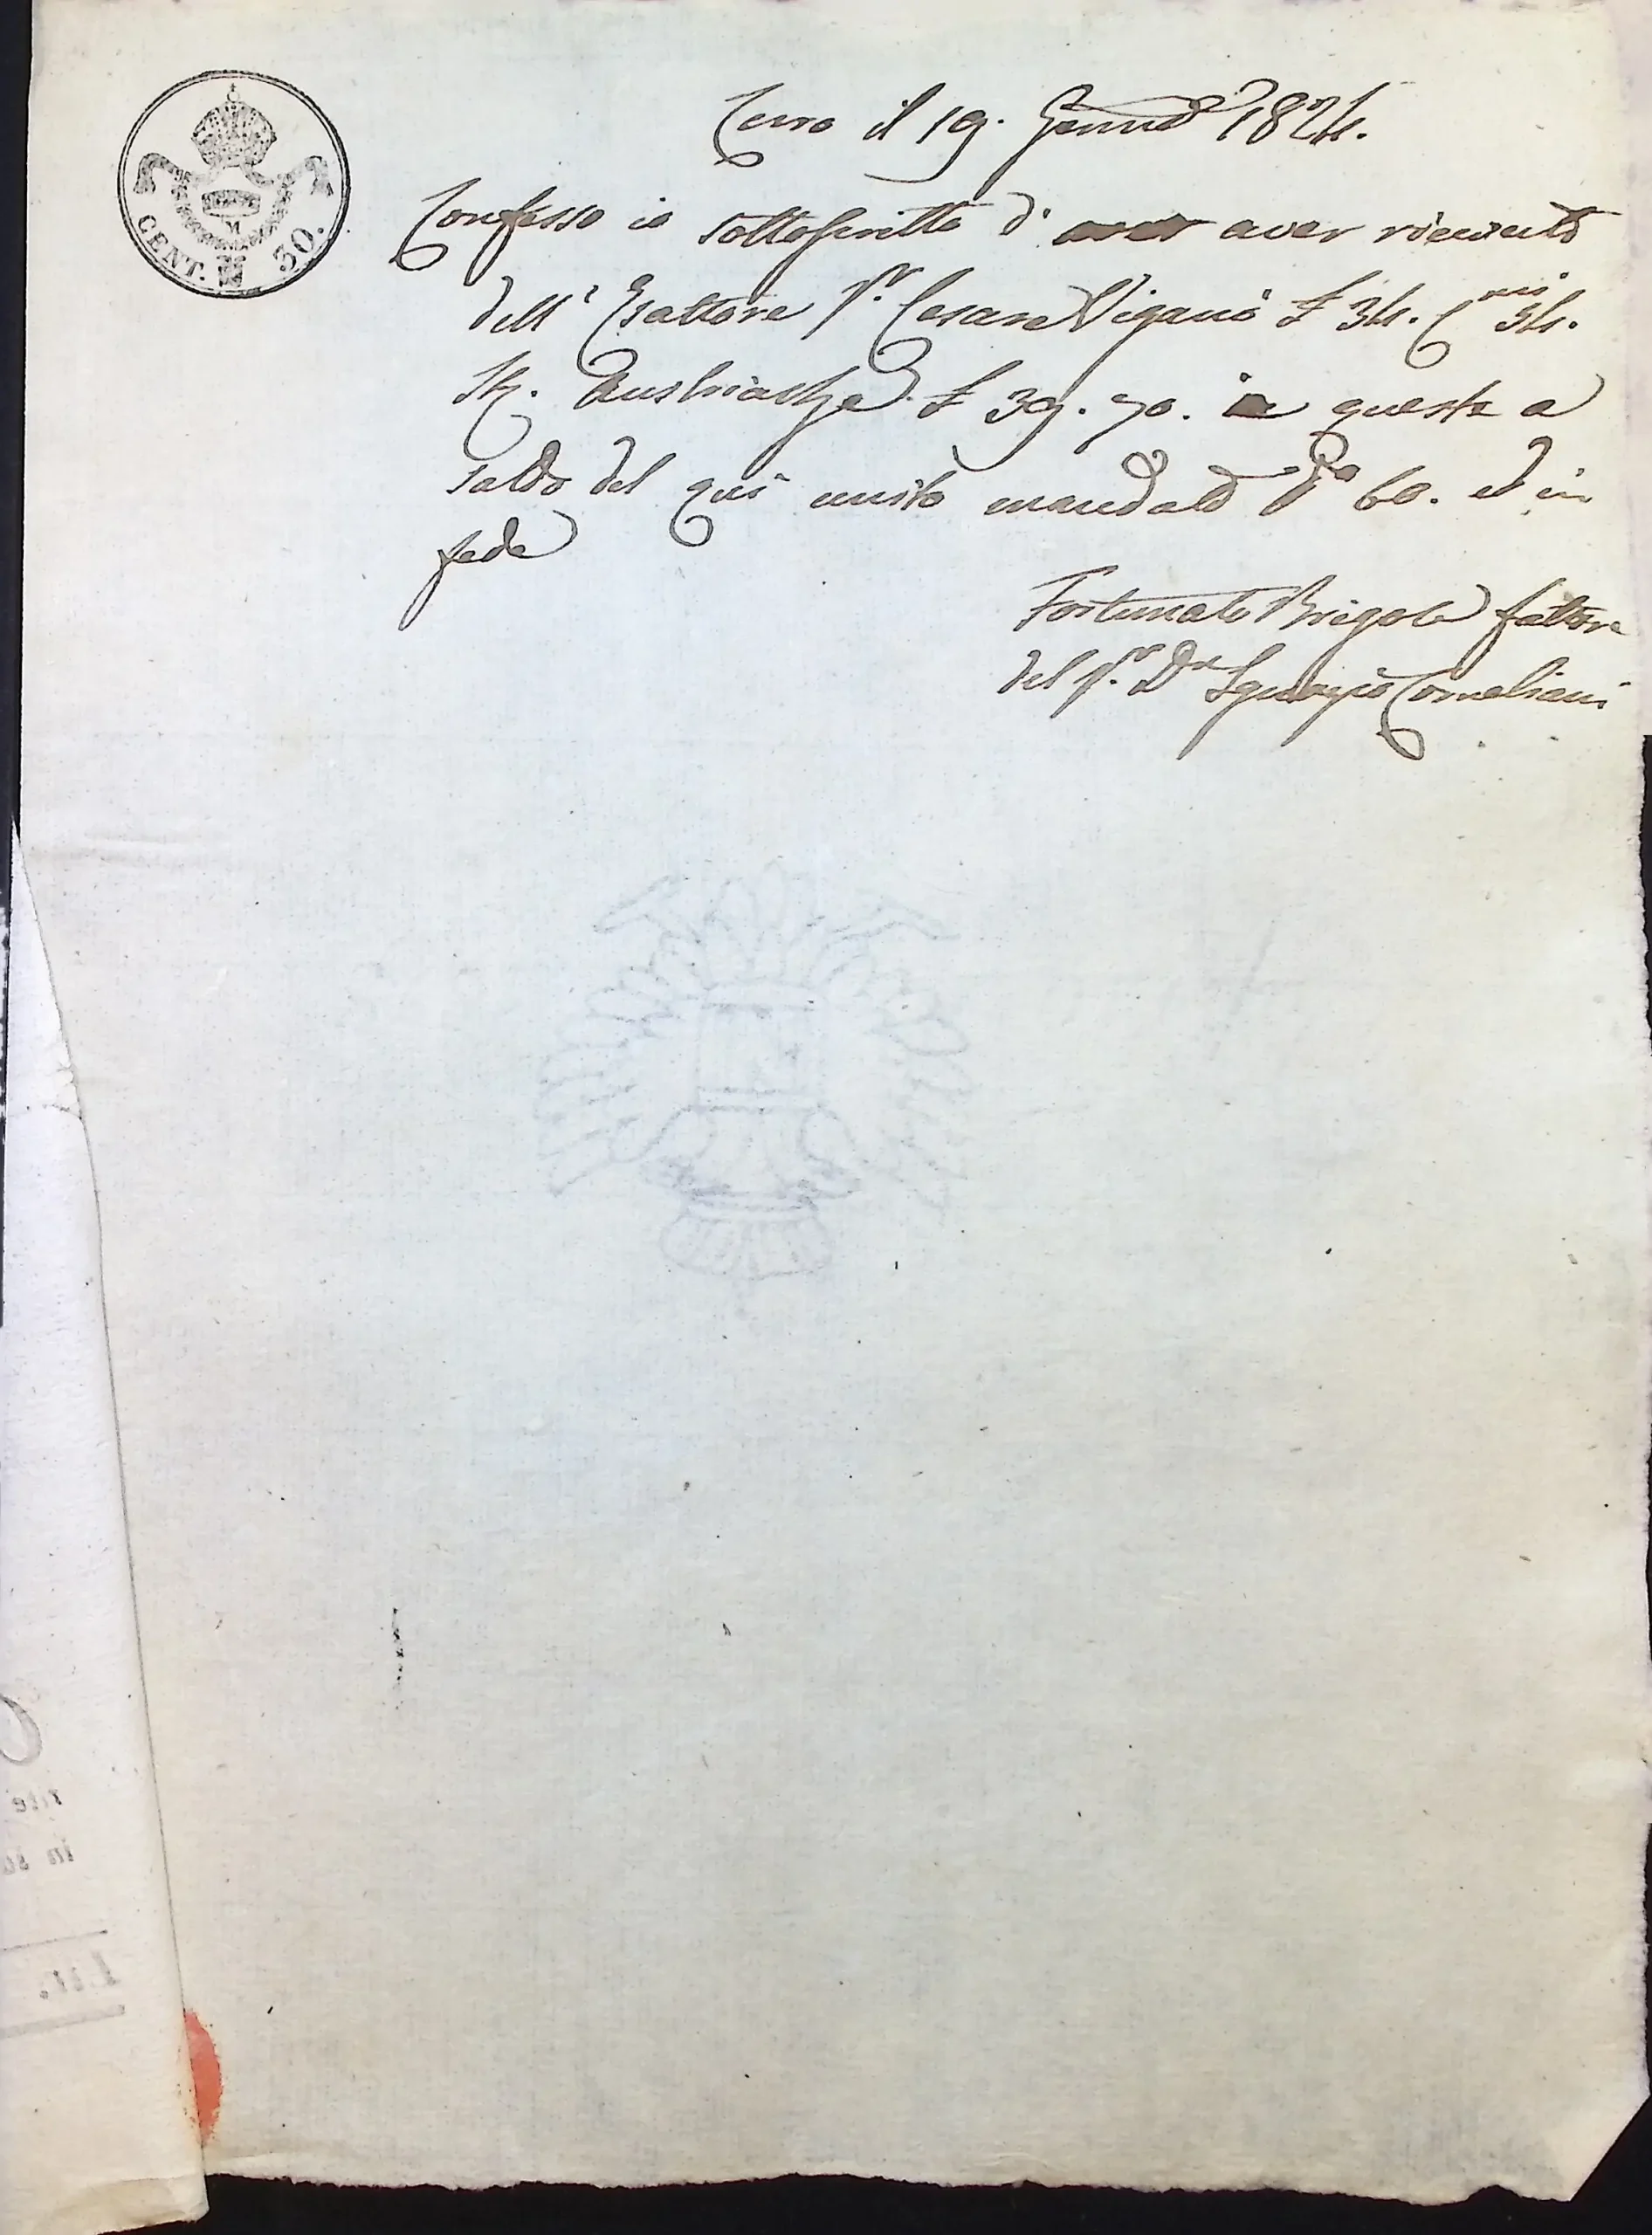 CENT. 30.
M
Cerro il 19. Gennaĵo 1824.
Confesso io sottoscritto d' aver ricevuto
dell' Esattore Sr. Cesare Viganò £ 34. Cmi 54.
Austriache £ 39. 70. queste a
saldo del quì unito mandato 60. ed in
fede
Fortunato Brigola fattore
del Sr. Dn Ignazio Corneliani
Lit.